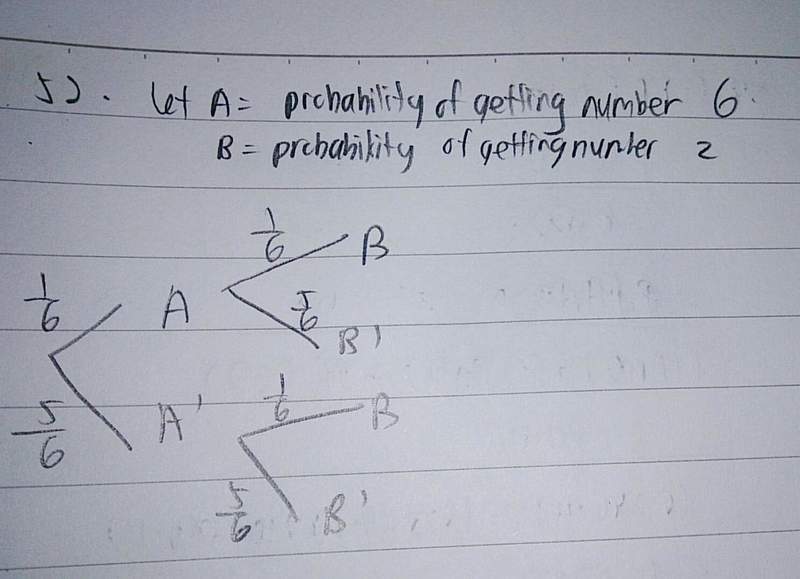 5). Let A = probability of getting number 6
B = probability of getting number 2
1/6 B
1/6 A 5/6 B'
5/6 A' 1/6 B
5/6 B'